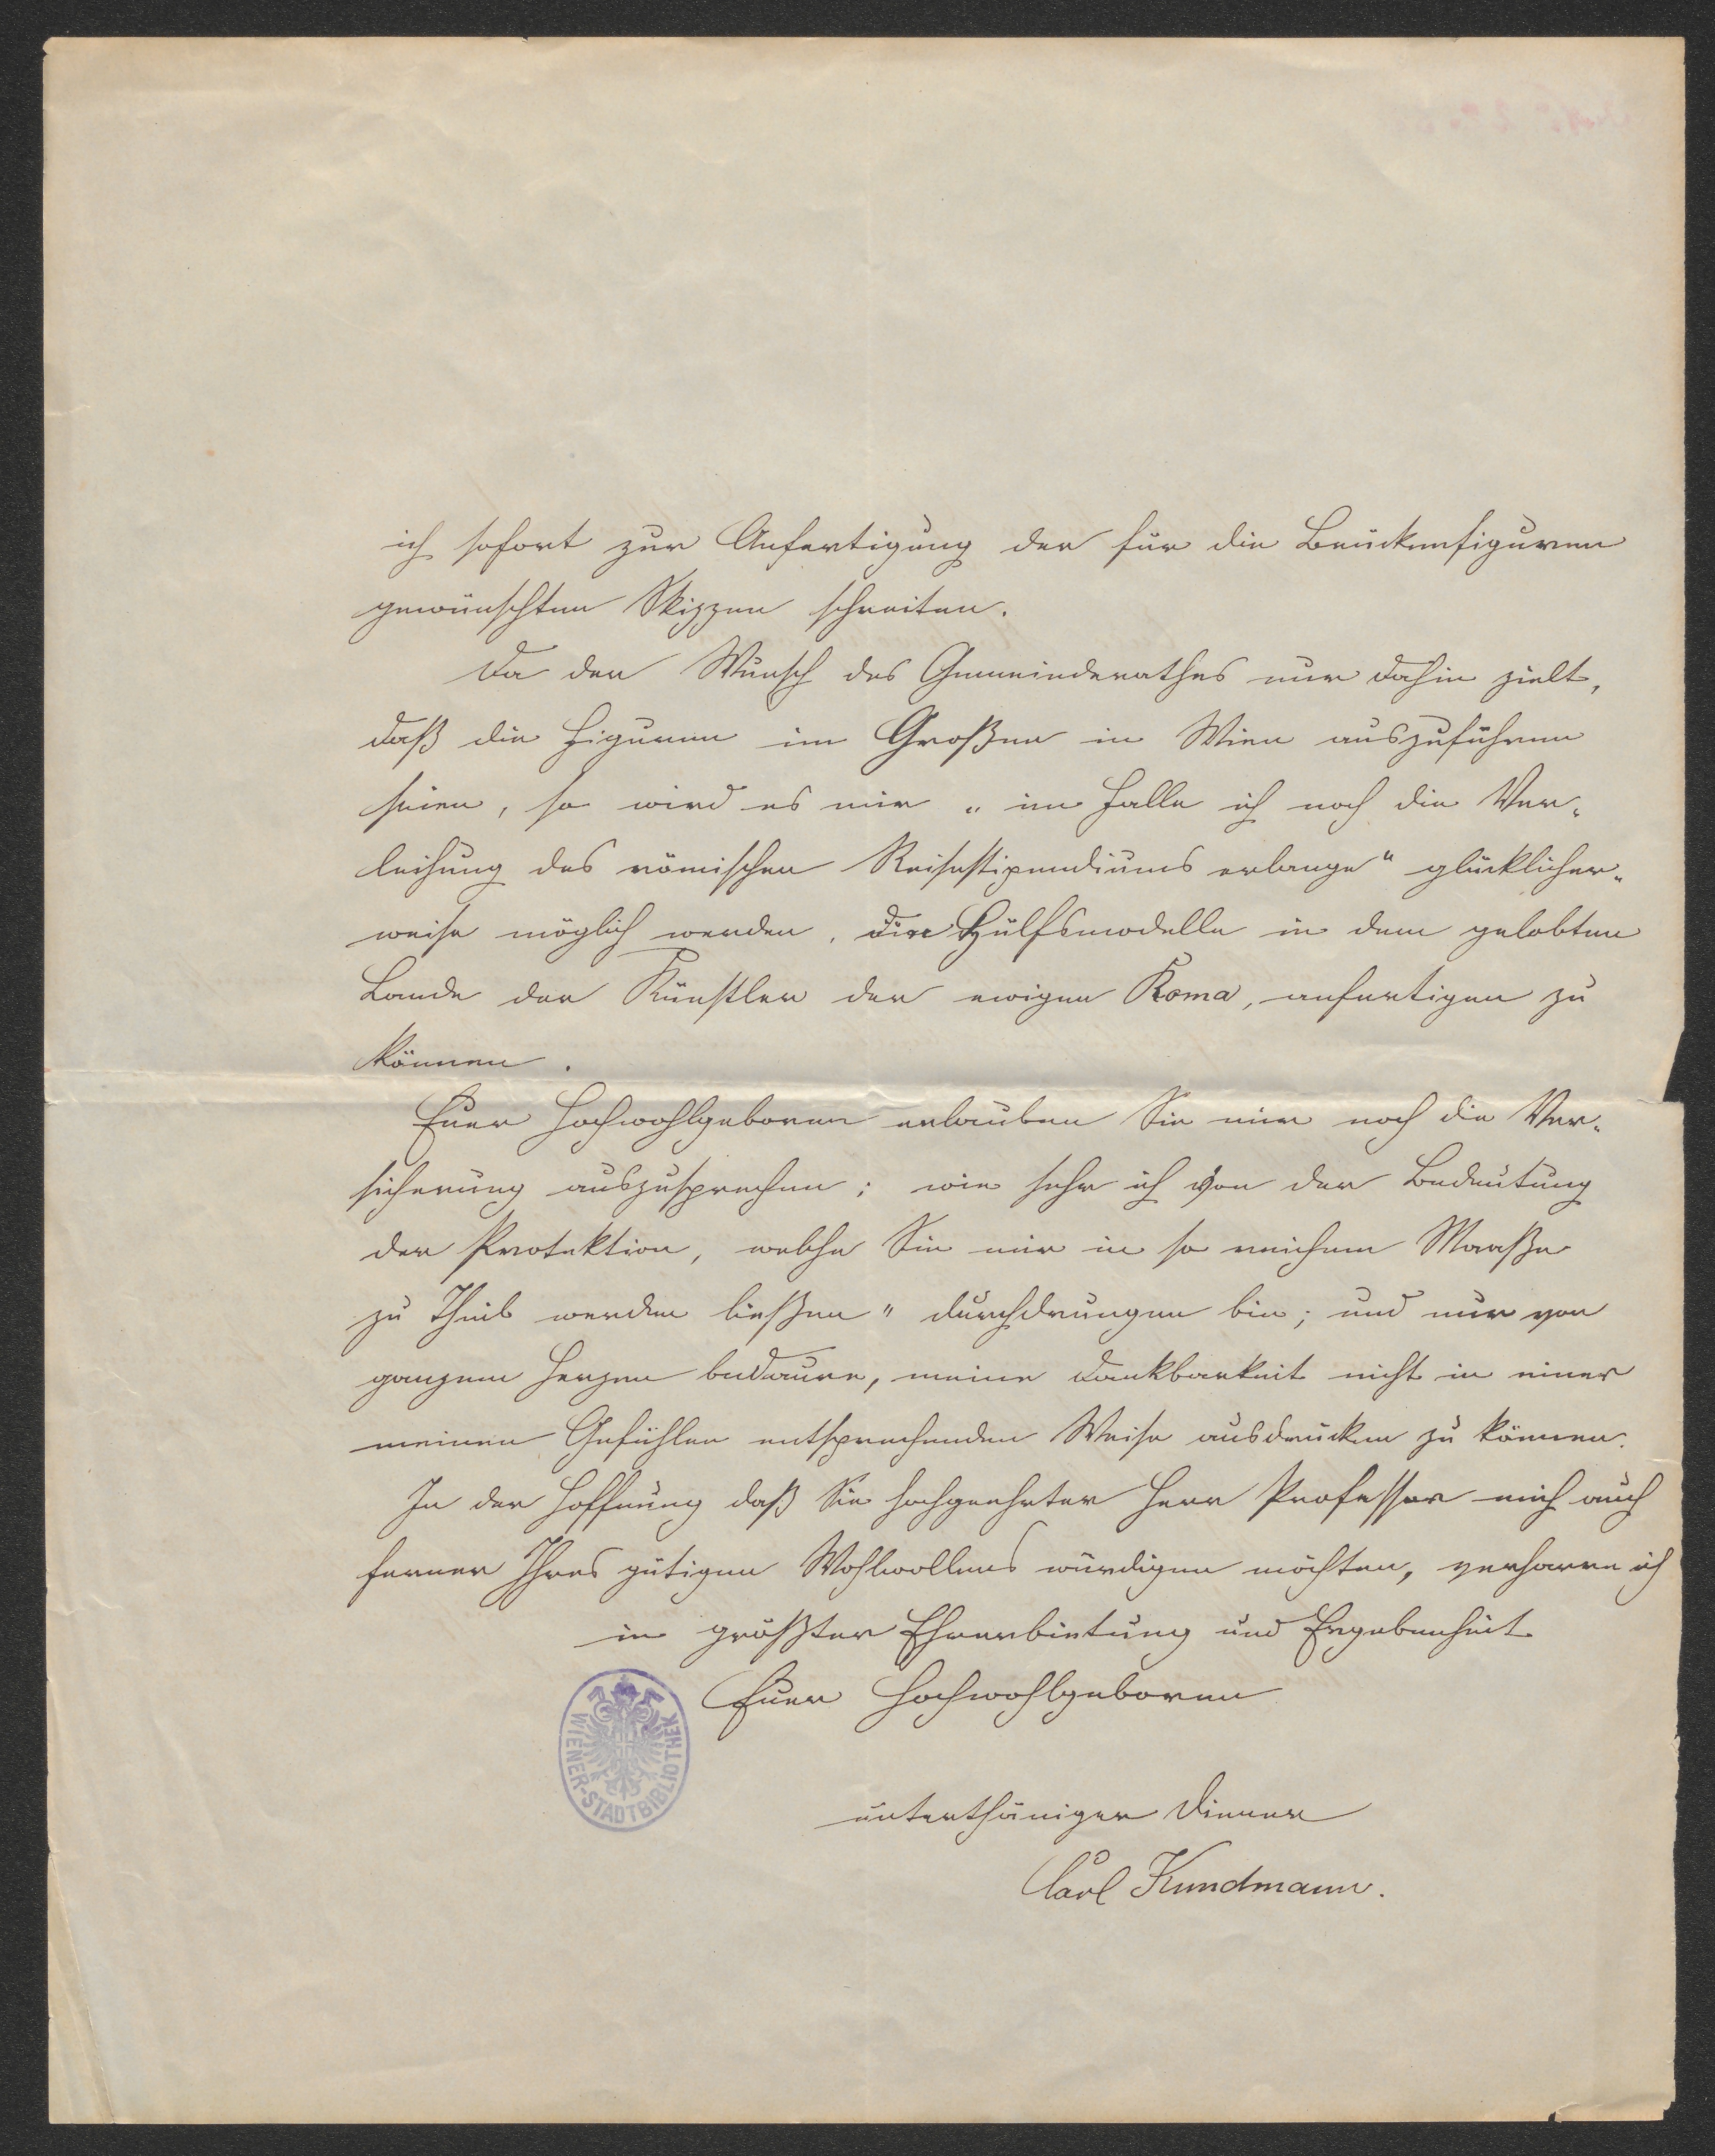 ich sofort zur Anfertigung der für die Brückenfiguren
gewünschten Skizzen schreiten.
Da der Wunsch des Gemeinderathes nur dahin zielt,
daß die Figuren im Großen in Wien auszuführen
seien, so wird es mir „im Falle ich noch die Ver-
leihung des römischen Reisestipendiums erlange“ glücklicher-
weise möglich werden, die Hülfsmodelle in dem gelobten
Lande der Künstler der ewigen Roma, anfertigen zu
können.
Euer Hochwohlgeboren erlauben Sie mir noch die Ver-
sicherung auszusprechen; wie sehr ich von der Bedeutung
der Protektion, welche Sie mir in so reichem Maaße
zu Theil werden ließen" durchdrungen bin; und nur von
ganzem Herzen bedaure, meine Dankbarkeit nicht in einer
meinen Gefühlen entsprechenden Weise ausdrücken zu können.
In der Hoffnung daß Sie hochgeehrter Herr Professor mich auch
ferner Ihres gütigen Wohlwollens würdigen möchten, verharre ich
in größter Ehrerbietung und Ergebenheit
Euer Hochwohlgeboren
WIENER-STADTBIBLIOTHEK
unterthäniger Diener
Carl Kundmann.